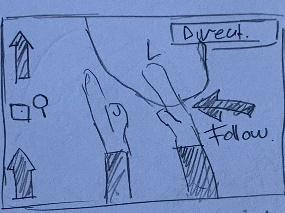 Direct.
L
Follow.